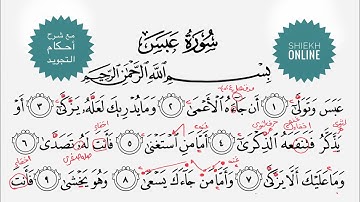 مع شرح
أحكام
التجويد
سُورَةُ عَبَسَ
SHIEKH
ONLINE
بِسْمِ اللَّهِ الرَّحْمَٰنِ الرَّحِيمِ
عَبَسَ وَتَوَلَّىٰٓ ١ أَن جَآءَهُ الْأَعْمَىٰ ٢ وَمَا يُدْرِيكَ لَعَلَّهُۥ يَزَّكَّىٰٓ ٣ أَوْ
يَذَّكَّرُ فَتَنفَعَهُ الذِّكْرَىٰٓ ٤ أَمَّا مَنِ اسْتَغْنَىٰ ٥ فَأَنتَ لَهُۥ تَصَدَّىٰ ٦
وَمَا عَلَيْكَ أَلَّا يَزَّكَّىٰ ٧ وَأَمَّا مَن جَآءَكَ يَسْعَىٰ ٨ وَهُوَ يَخْشَىٰ ٩ فَأَنتَ